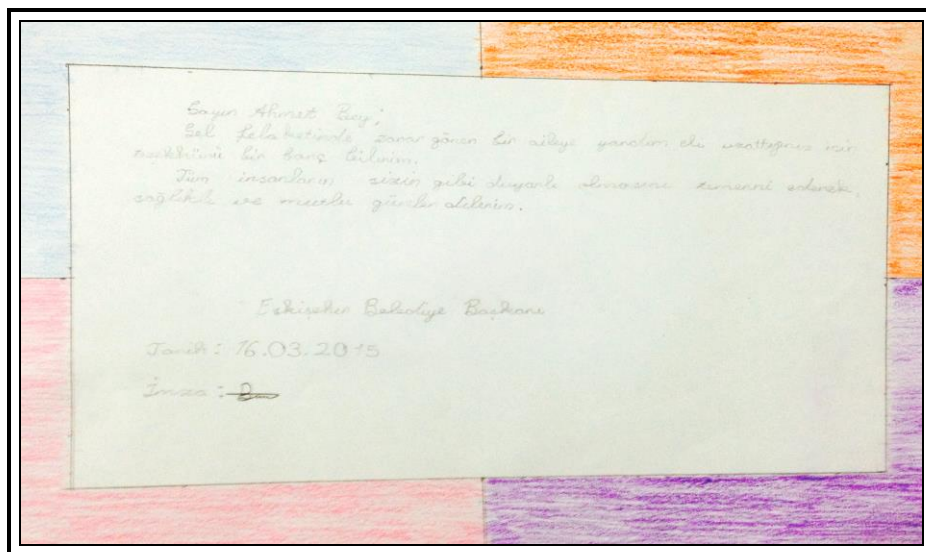 Sayın Ahmet Bey;
Sel felaketinde zarar gören bir aileye yardım eli uzattığınız için
teşekkürü bir borç bilirim.
Tüm insanların sizin gibi duyarlı olmasını temenni ederek,
sağlıklı ve mutlu günler dilerim.
Eskişehir Belediye Başkanı
Tarih: 16.03.2015
İmza: